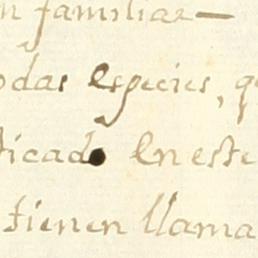 n familiar—
odas especies, q
ticado En este
tienen llama